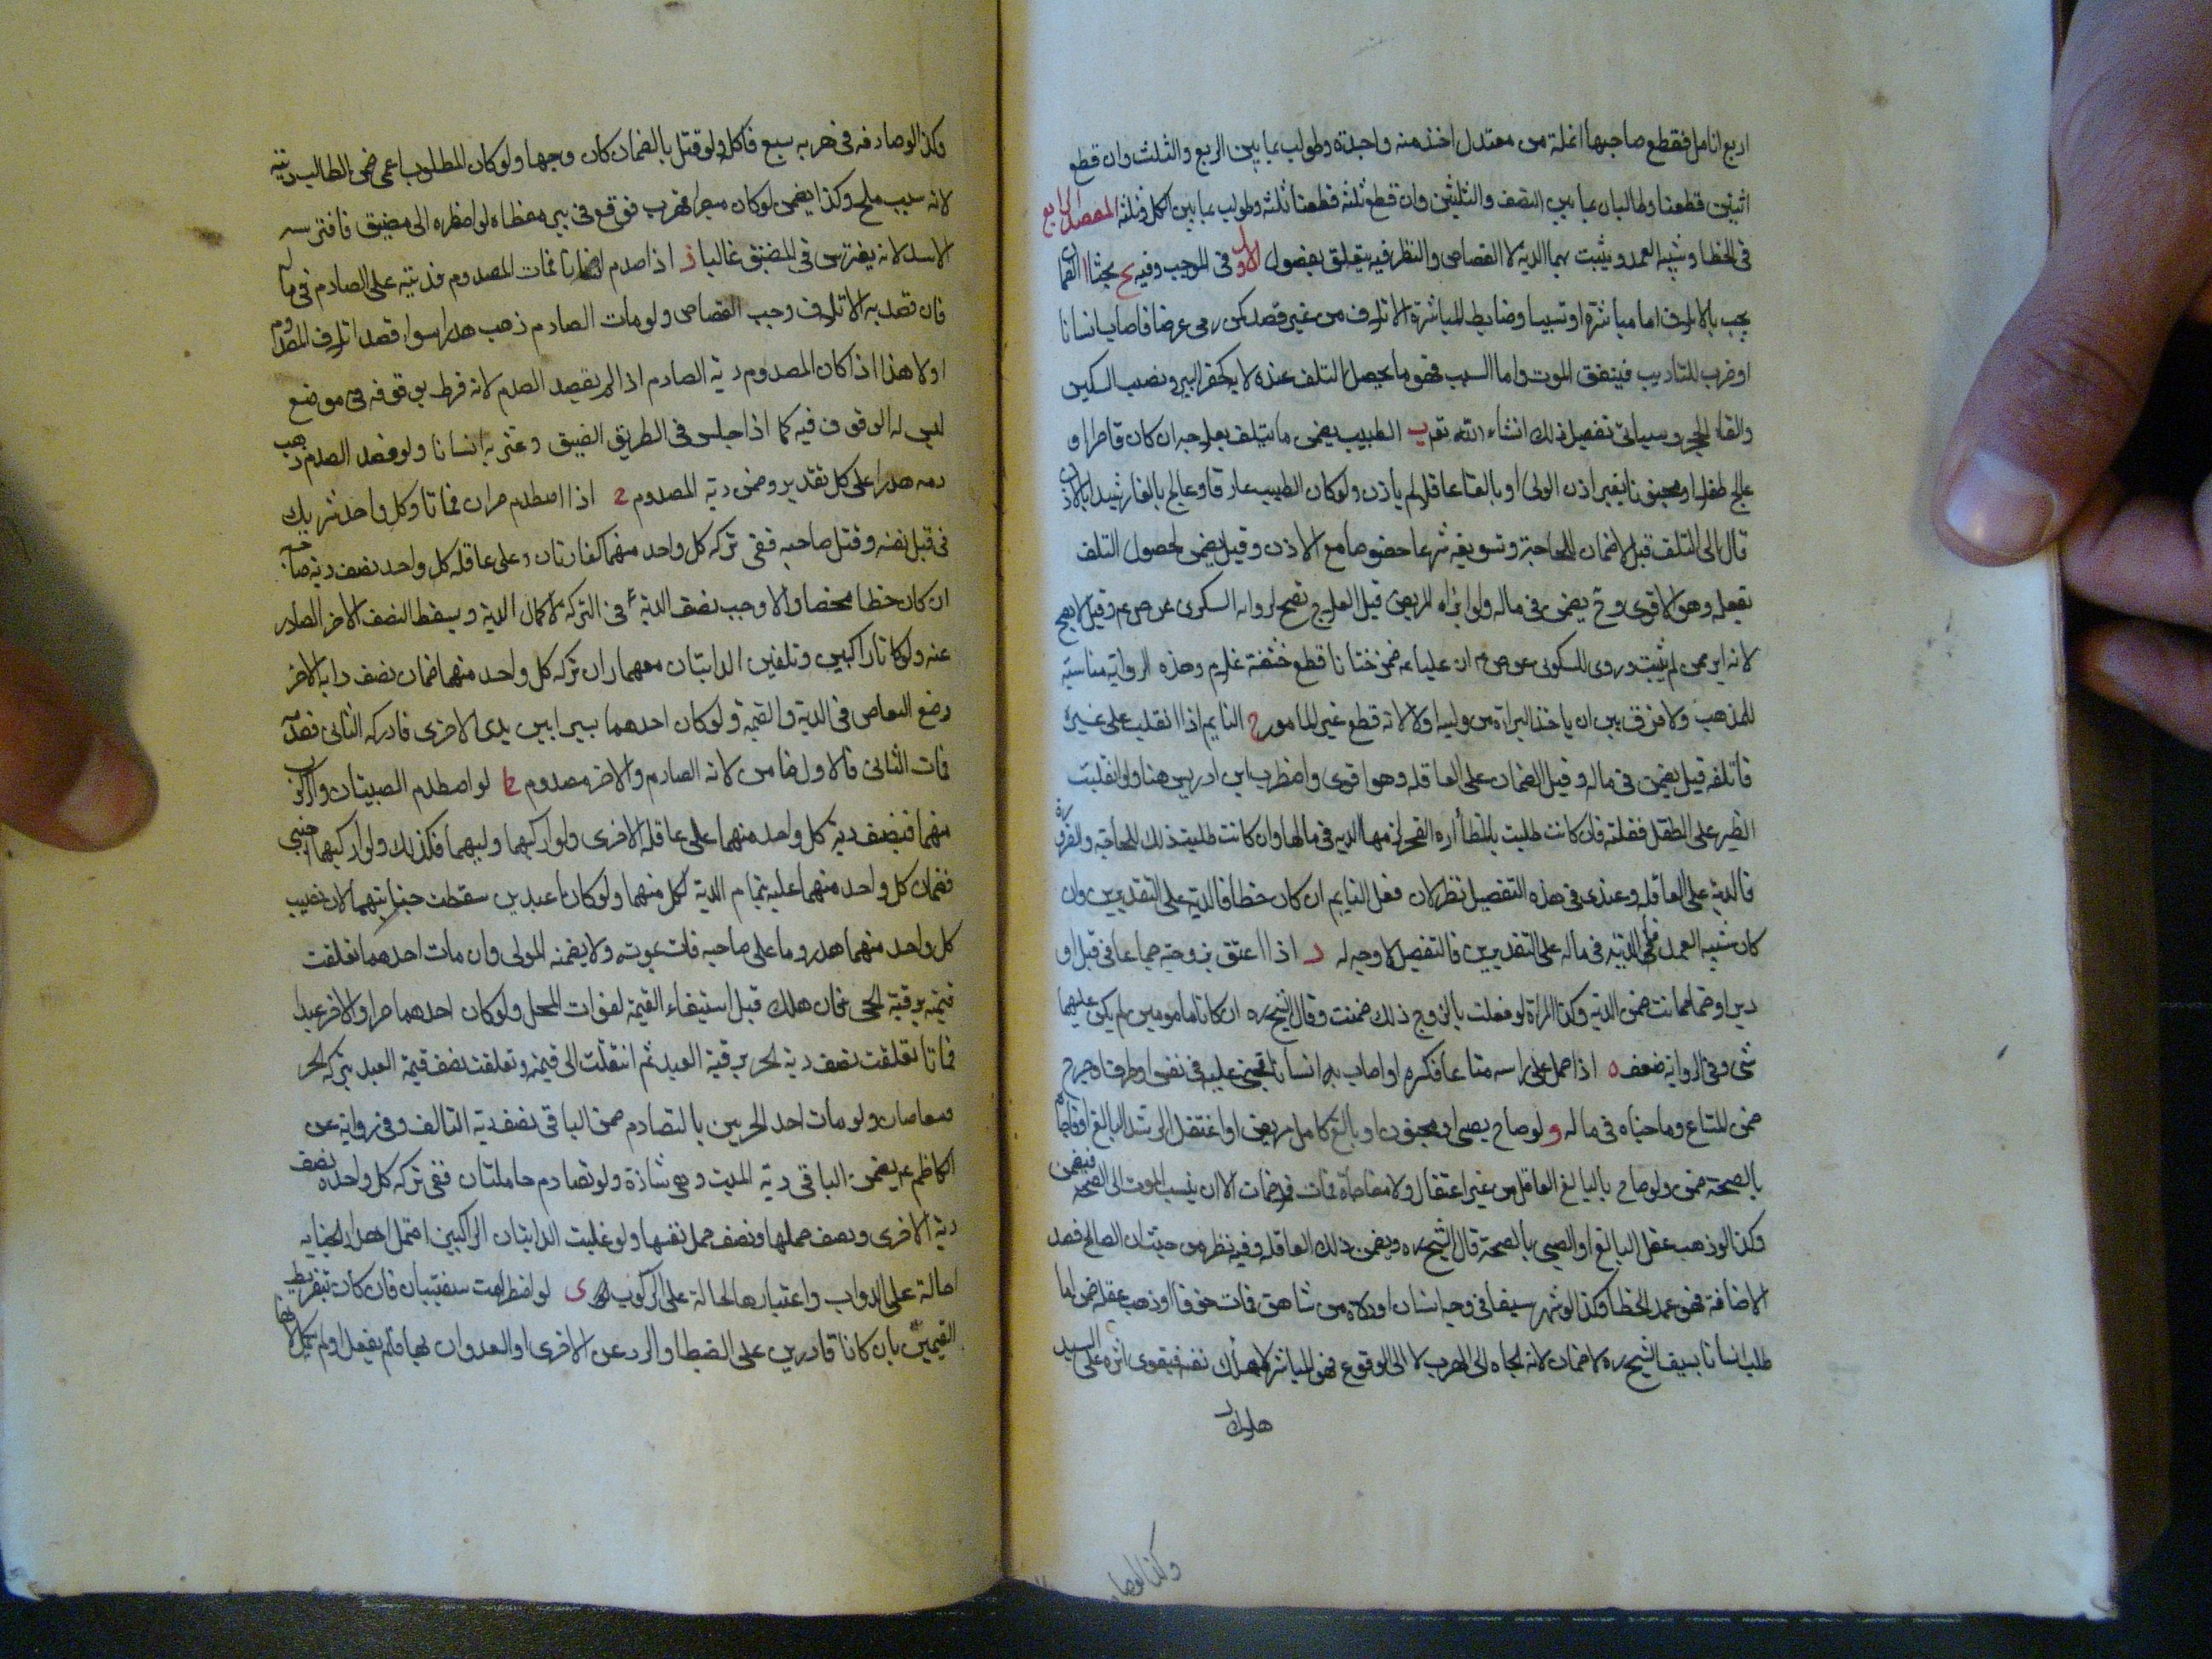 اربع انامل فقطع صاحبها انملة من معتدل اخذ منه واحدة وطولب بما بين الربع والثلث وان قطع
اثنين قطعنا وطالبان بما بين النصف والثلثين وان قطع ثلثة قطعنا ثلثة وطولب بما بين الكل وثلثة المقصد الرابع
فى الخطا وشبيه العمد ويثبت بهما الدية لا القصاص والنظر فيه يتعلق بفصول الاول فى الموجب وفيه يح بحثا ا الضمان
يجب بالاتلاف اما مباشرة او تسبيبا وضابط المباشرة الاتلاف من غير قصد كمن رمى غرضا فاصاب انسانا
او ضرب للتاديب فيتفق الموت واما السبب فهو ما يحصل التلف عنده لا به كحفر البير ونصب السكين
والقاء الحجر وسياتى تفصيل ذلك انشاء الله تعه ب الطبيب يضمن ما يتلف بعلاجه ان كان قاصرا او
عالج طفلا او مجنونا بغير اذن الولى او بالغا عاقلا لم ياذن ولو كان الطبيب عارفا وعالج بالغا رشيدا بالاذن
فال الى التلف قيل لا ضمان للحاجة وتسويغه شرعا خصوصا مع الاذن وقيل يضمن لحصول التلف
بفعله وهو الاقوى وح يضمن فى ماله ولو ابراه المريض قبل العلاج تصح لرواية السكونى عن ص ع وقيل لا يصح
لانه ابر ممن لم يثبت وروى السكونى عن ص ع ان عليا عه ضمن ختانا قطع حشفة غلام وهذه الرواية مناسبة
للمذهب ولا فرق بين ان ياخذ البراة من وليه او لا لانه قطع غير المامور ج النايم اذا انقلب على غيره
فاتلفه قيل يضمن فى ماله وقيل الضمان على العاقله وهو اقوى واضطرب ابن ادريس هنا ولو انقلبت
الظير على الطفل فقتلته فان كانت طلبت بالمظائره الفخر لزمها الديه فى مالها وان كانت طلبت ذلك للحاجة والضرورة
فالدية على العاقله وعندى فى هذه التفصيل نظر لان فعل النايم ان كان خطا فالدية على التقديرين وان
كان شبيه العمد فهى الدية فى ماله على التقديرين فالتفصيل لا وجه له د اذا اعتق زوجته جماعا فى قبل او
دبر او ضما فماتت ضمن الدية وكذا المراة لو فعلت بالزوج ذلك ضمنت وقال الشيخ ره ان كانا مامونين لم يكن عليهما
شى وفى الرواية ضعف ه اذا حمل على راسه متاعا فكسره او اصاب به انسانا فجنى عليه فى نفس او طرف او جرح
ضمن المتاع وما جناه فى ماله و لو صاح بصبى او مجنون او بالغ كامل مريض او اغتفل البالغ او فاجاه
بالصيحة ضمن ولو صاح بالبالغ العاقل من غير اغتفال ولا مفاجاة فمات فلا ضمان الا ان ينسب الموت الى الصيحة فيضمن
وكذا لو ذهب عقل البالغ او الصبى بالصيحة قال الشيخ ره ويضمن ذلك العاقله وفيه نظر من حيث ان الصالح قصد
الاضافة فهو عمد الخطا وكذا لو شهر سيفا فى وجه انسان او دلاه من شاهق فمات خوفا او ذهب عقله اما
طلب انسانا بسيف الشيخ ره لا ضمان لانه الجاه الى الهرب لا الى الوقوع فهو المباشر لاهلاك نفسه فيقوى اثره على السبب
هلاك
وكذا لو صا
وكذا لو صادفه فى هربه سبع فاكل ولو قتل بالضمان كان وجها ولو كان المطلوب اعمى ضمن الطالب ديته
لانه سبب ملج وكذا يضمن لو كان مبصرا فهرب فوقع فى بير مغطاة او اضطره الى مضيق فافترسه
الاسد لانه يفترس فى المضيق غالبا ز اذا صدم انسانا فمات المصدوم فديته على الصادم فى ماله
فان قصد به الاتلاف وجب القصاص ولو مات الصادم ذهب هدرا سوا قصد اتلاف المصدوم
او لا هذا اذا كان المصدوم دية الصادم اذا لم يقصد الصدم لانه فرط بوقوفه فى موضع
ليس له الوقوف فيه كما اذا جلس فى الطريق الضيق وعثر به انسانا ولو قصد الصدم ذهب
دمه هدرا على كل تقدير وضمن دية المصدوم ح اذا اصطدم حران فماتا وكل واحد شريك
فى قتل نفسه وقتل صاحبه ففى تركة كل واحد منهما كفارتان وعلى عاقلة كل واحد نصف دية صاحبه
ان كان خطا محضا والا وجب نصف الدية فى التركة لاكمال الدية ويسقط النصف الاخر الصادر
عنه ولو كانا راكبين وتلفت الدابتان معهما ان تركة كل واحد منهما ضمان نصف دابة الاخر
وضع التعاص فى الدية والقيمة ولو كان احدهما يسيرا بين يدى الاخرى فادركه الثانى فصدمه
فمات الثانى فالاول ضامن لانه الصادم والاخر مصدوم ط لو اصطدم الصبيتان والراكب
منهما فنصف دية كل واحد منهما على عاقلة الاخرى ولو اركبهما وليهما فكذلك ولو اركبهما اجنبى
فضمان كل واحد منهما عليه بتمام الدية لكل منهما ولو كانا عبدين سقطت جنايتهما لان نصيب
كل واحد منهما هدر وما على صاحبه فات بموته ولا يضمنه المولى وان مات احدهما تعلقت
قيمته برقبة الحى فان هلك قبل استيفاء القيمة لفوات المحل ولو كان احدهما حرا والاخر عبدا
فماتا تعلقت نصف دية الحر برقبة العبد ثم انتقلت الى قيمته وتعلقت نصف قيمة العبد بتركة الحر
ولو مات احد الحرين بالتصادم ضمن الباقى نصف دية التالف وفى رواية عن
الكاظم ع يضمن الباقى دية الميت وهى شاذة ولو تصادم حاملتان ففى تركة كل واحدة نصف
دية الاخرى ونصف حملها ونصف حمل نفسها ولو غلبت الدابتان الراكبين احتمل اهدار الجنايه
احالة على الدواب واعتبارها لحالة على الركوب ى لو اضطلمت سفينتان فان كان بتفريط
القيمين بان كانا قادرين على الضبط والرد عن الاخرى او العدوان بها فلم يفعل او لم يكملا